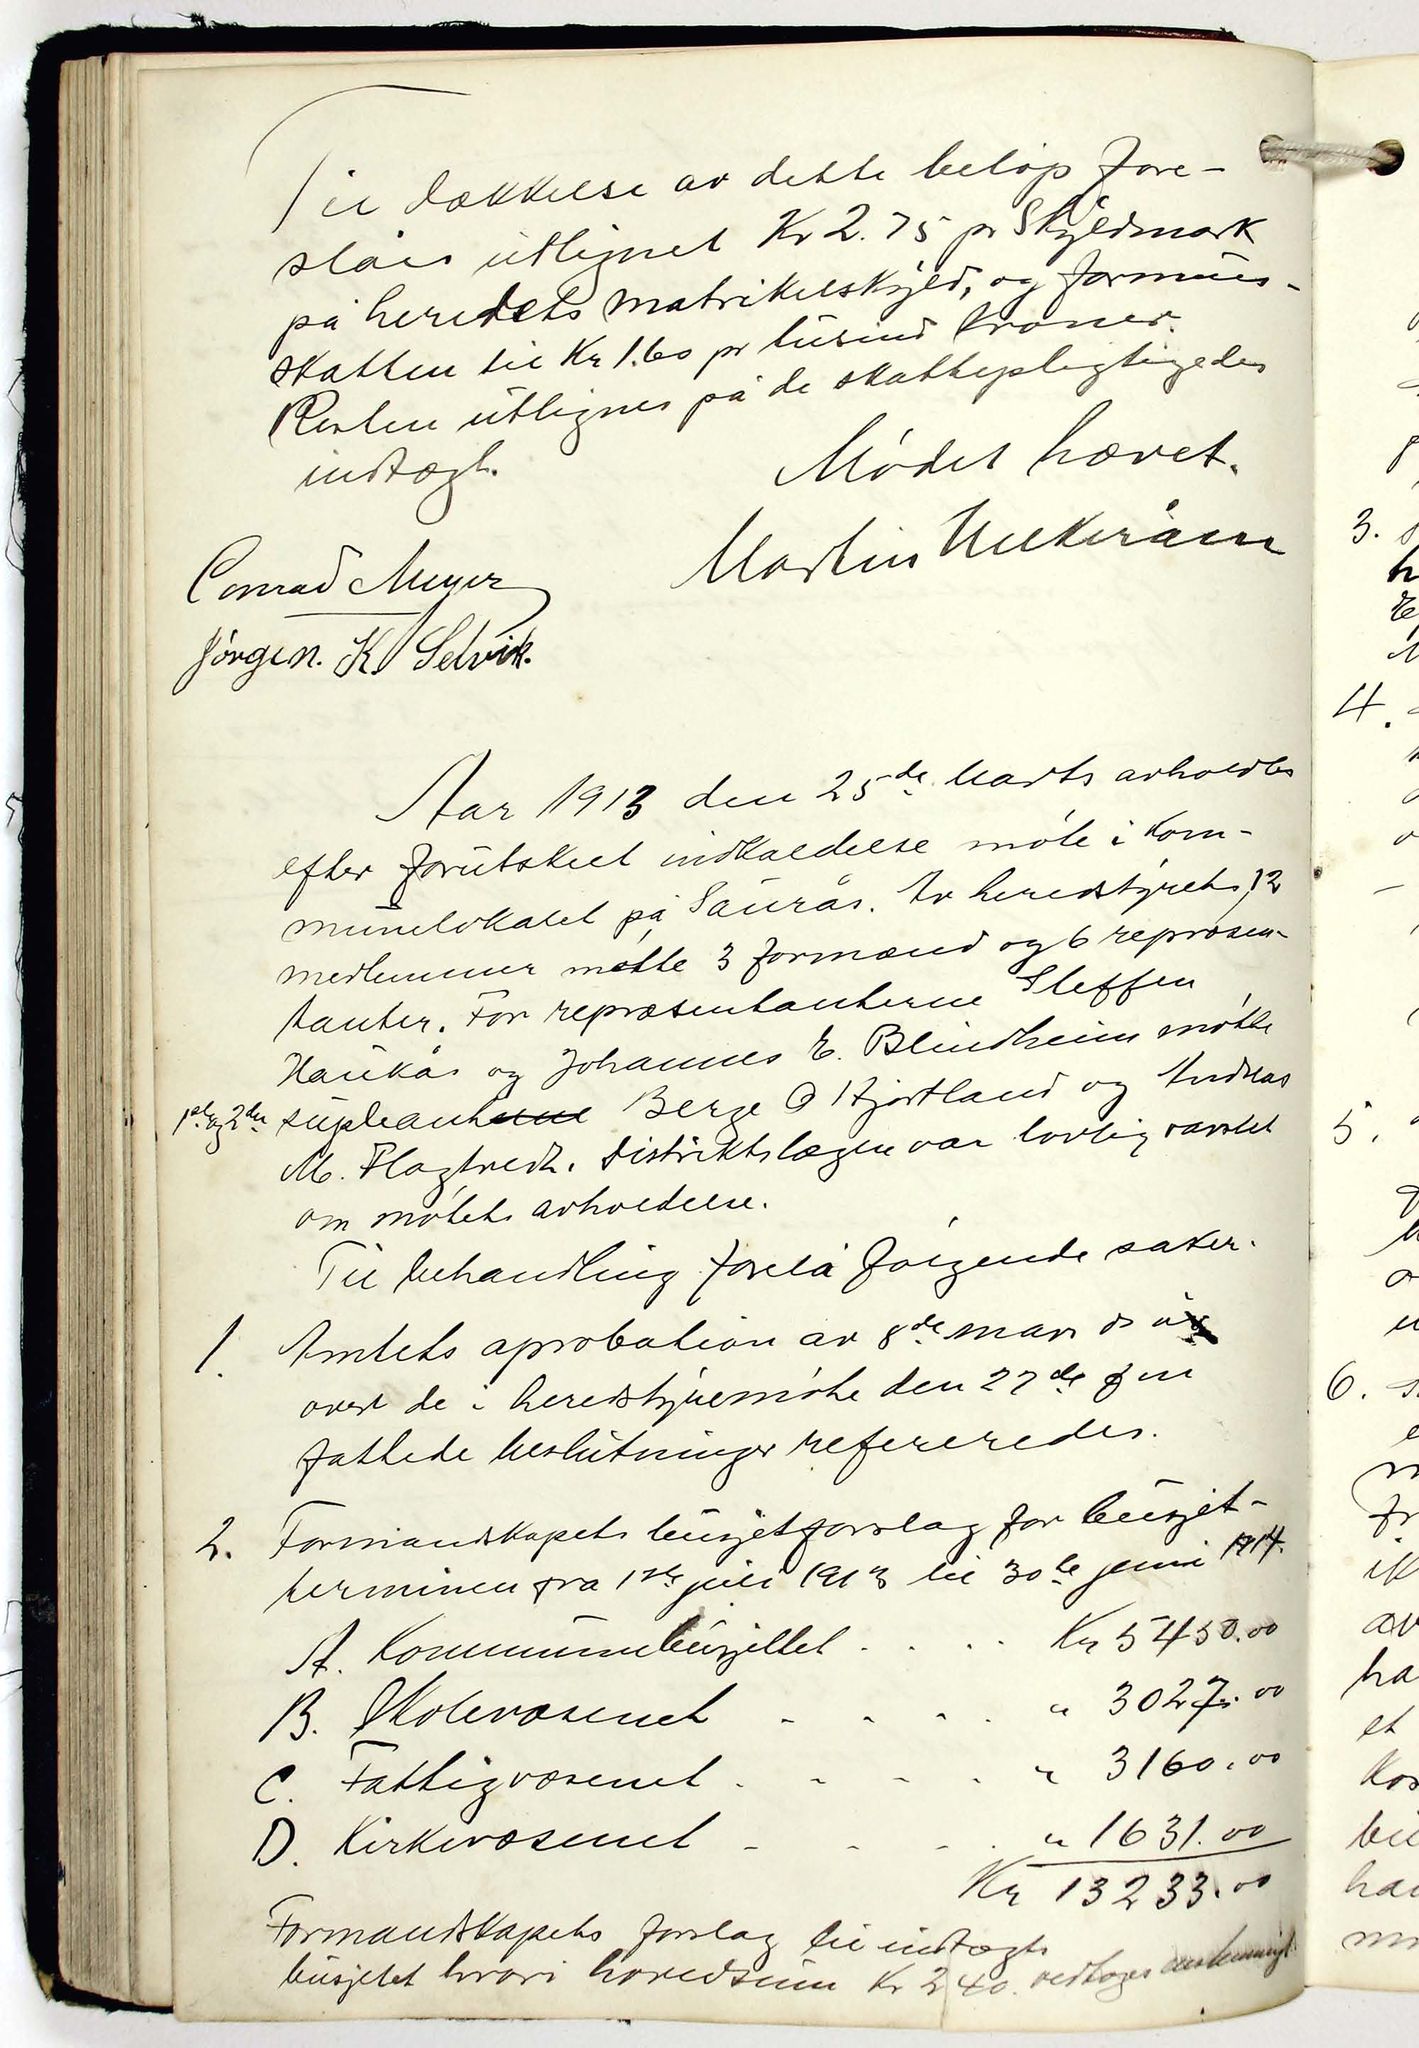 Til dækkelse av dette beløp fore-
slåes utlignet Kr 2.75 pr Skyldmark
på heredets matrikelskyld, og formues-
skatten til Kr 1.60 pr tusind kroner.
Resten utlignes på de skattepligtigedes
indtægt.
Mødet hævet.
Martin
Conrad Meyer
Jørgen. K. Selvik.
Aar 1913 den 25de Marts avholdtes
efter forutskeet indkaldelse møte i Kom-
munelokalet på Saurås. Av heredstyrets 12
medlemmer møtte 3 formænd og 6 repræsen-
tanter. For repræsentanterne Steffen
Haukås og Johannes E. Blindheim møtte
1ste og 2den supleanterne Berge O Hjortland og Andreas
M. Flagtvedt. Distriktslægen var lovlig varslet
om møtets avholdelse.
Til behandling forelå følgende saker.
1. Amtets aprobation av 8de mars ds å
over de i heredstyremøte den 27de f m
fattede beslutninger refereredes.
2. Formandskapets busjetforslag for busjet-
terminen fra 1ste juli 1913 til 30te juni 1914.
A. Kommunebusjettet . . . . Kr 5450.00
B. Skolevæsenet - - - . " 3027.00
C. Fattigvæsenet . - - . " 3160.00
D. Kirkevæsenet - - - . " 1631.00
Kr 13233.00
Formandskapets forslag til indtægts
busjetet hvori hovedsum Kr 240. vedtages enstemmigt.
3.
4.
5.
6.